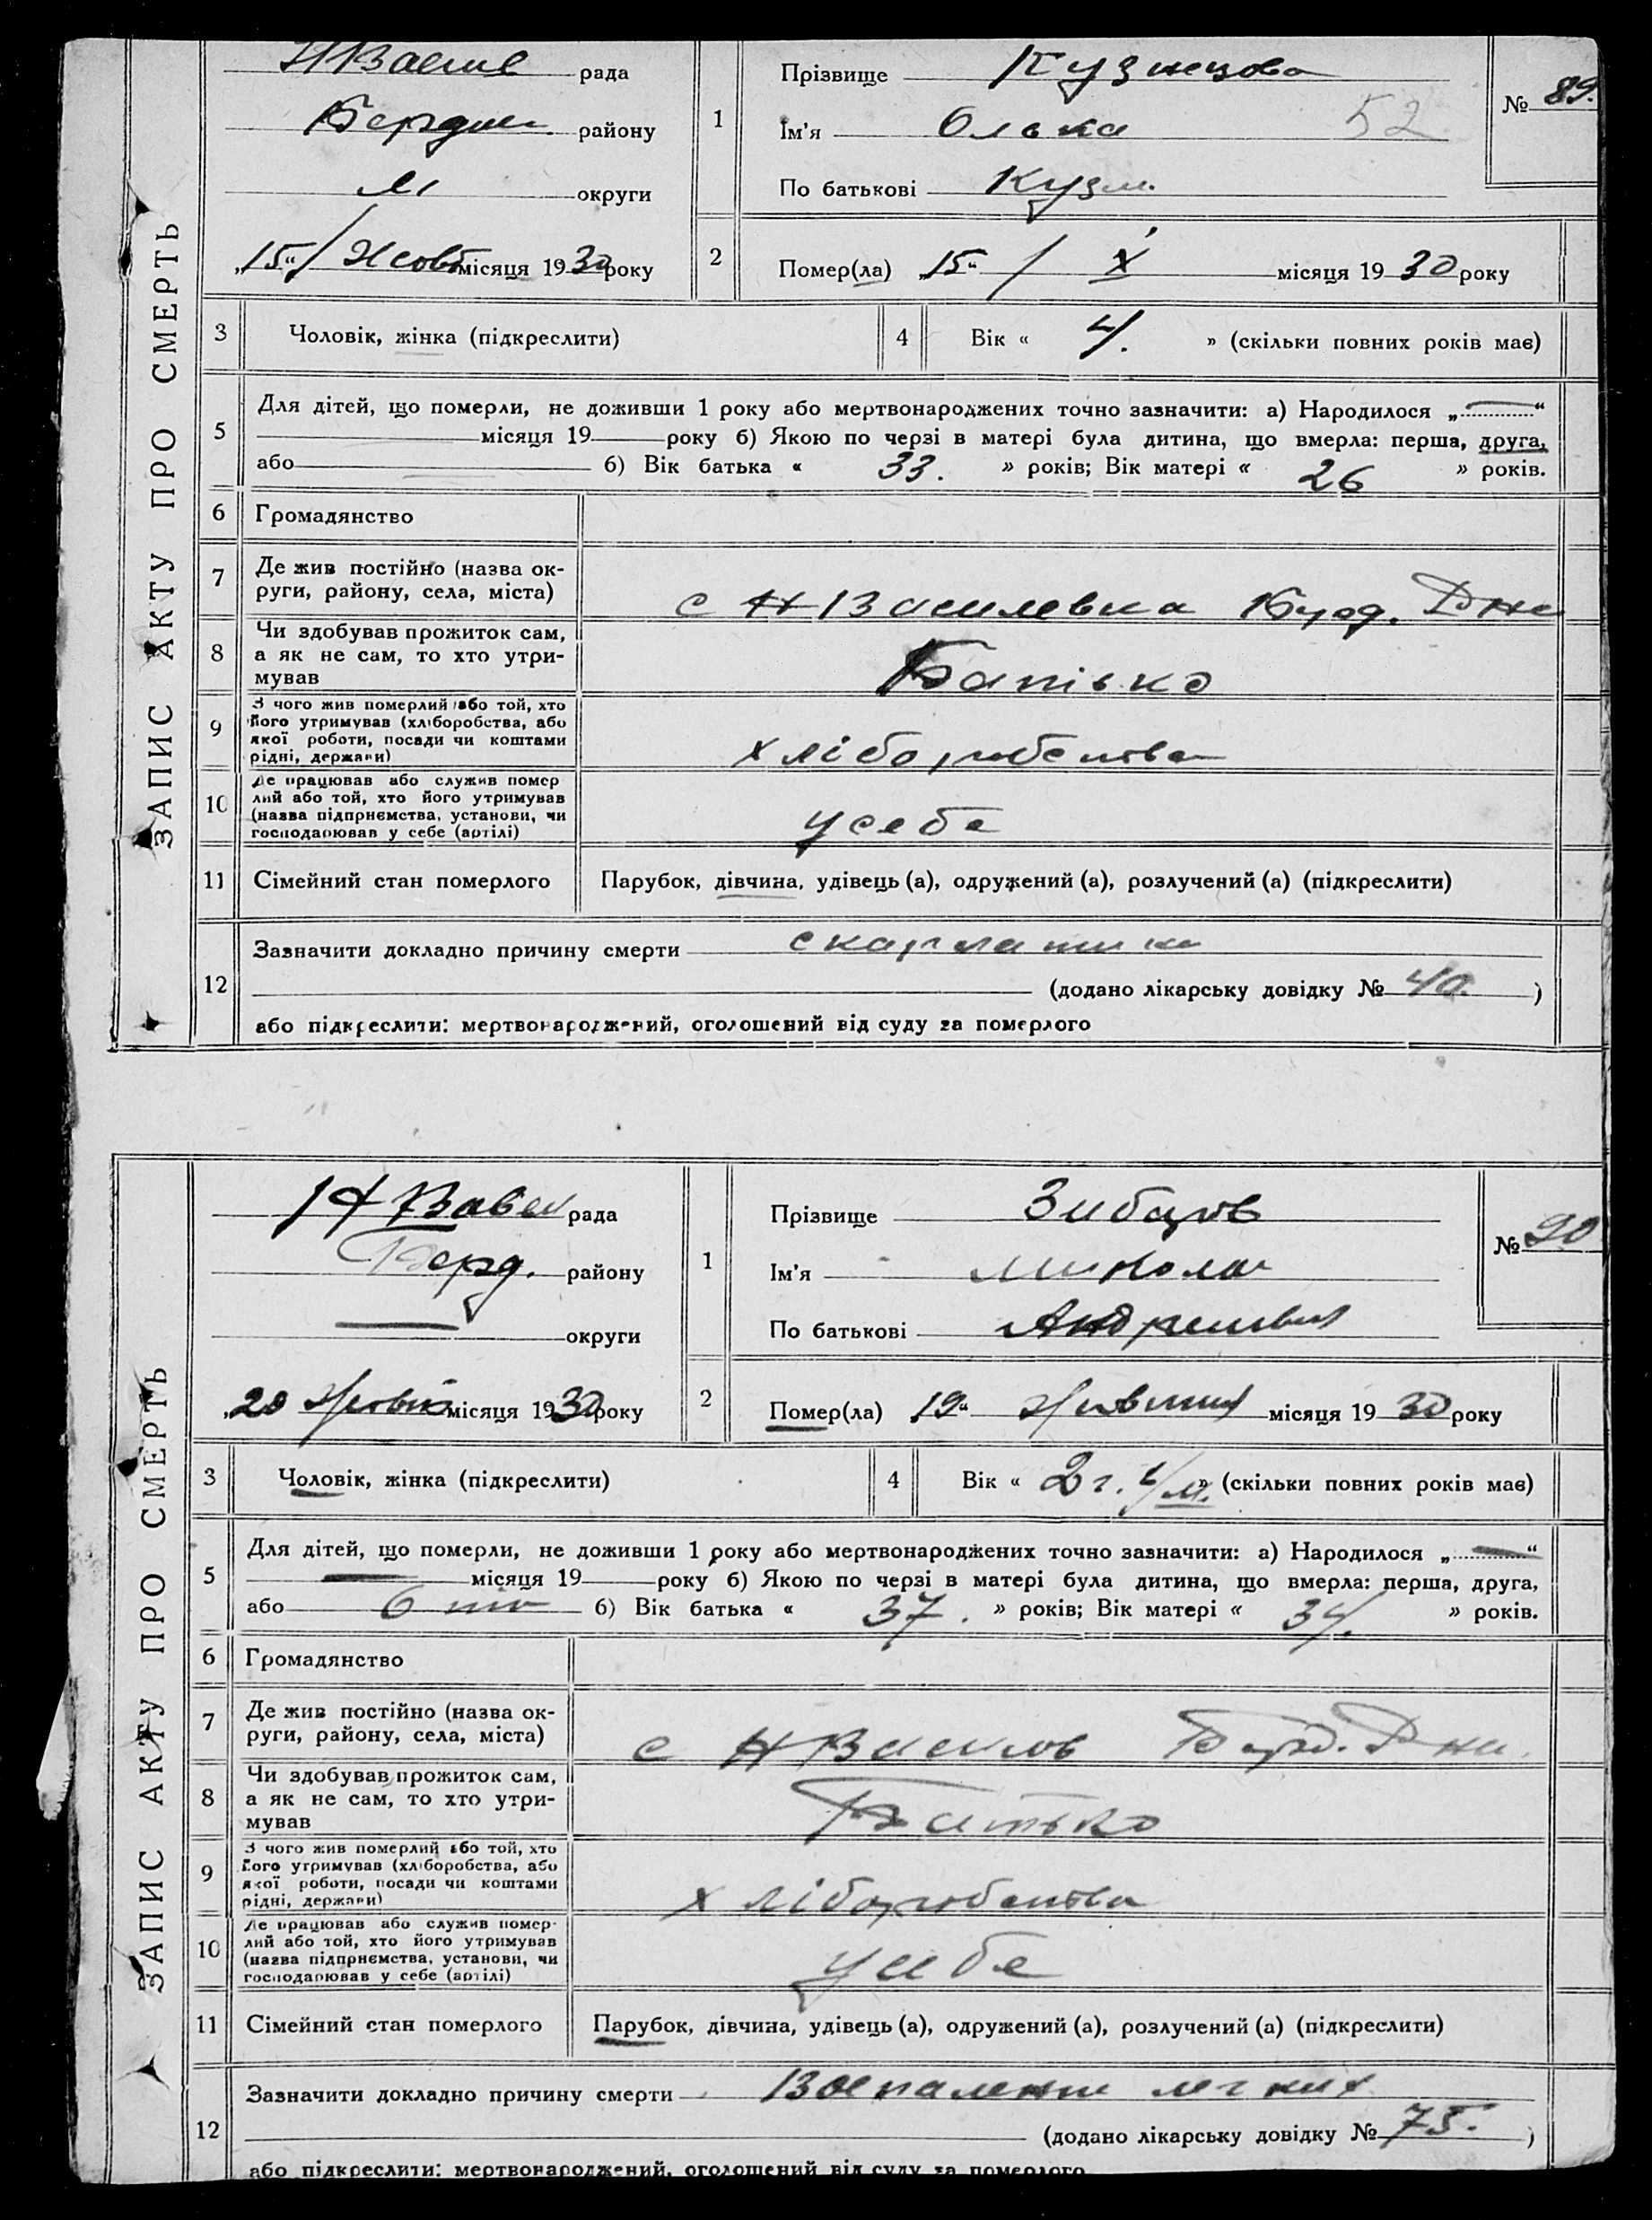 ЗАПИС АКТУ ПРО СМЕРТЬ
рада
району
округи
„15“ Жовт місяця 1930 року
1
Прізвище Кузнецова
Ім'я Олька 52
По батькові Кузм.
№ 89.
2
Помер(ла) „15“ / X місяця 1930 року
3 Чоловік, жінка (підкреслити)
4 Вік « 4. » (скільки повних років має)
5 Для дітей, що померли, не доживши 1 року або мертвонароджених точно зазначити: а) Народилося „ “
місяця 19 року б) Якою по черзі в матері була дитина, що вмерла: перша, друга,
або б) Вік батька « 33. » років; Вік матері « 26 » років.
6 Громадянство
7 Де жив постійно (назва ок-
руги, району, села, міста)
с Н Василевка Дне
8 Чи здобував прожиток сам,
а як не сам, то хто утри-
мував
Батько
9 З чого жив померлий або той, хто
його утримував (хліборобства, або
якої роботи, посади чи коштами
рідні, держави)
хліборобства
10 Де працював або служив помер
лий або той, хто його утримував
(назва підприємства, установи, чи
господарював у себе (артілі)
у себе
11 Сімейний стан померлого Парубок, дівчина, удівець (а), одружений (а), розлучений (а) (підкреслити)
12 Зазначити докладно причину смерти скарлатина
(додано лікарську довідку № 40. )
або підкреслити: мертвонароджений, оголошений від суду за померлого
ЗАПИС АКТУ ПРО СМЕРТЬ
рада
Берд. району
округи
„20 місяця 1930 року
1
Прізвище Зибарів
Ім'я Микола
По батькові Андреевич
№ 90
2
Помер(ла) 19“ місяця 1930 року
3 Чоловік, жінка (підкреслити)
4 Вік « 2 г. 4/м. » (скільки повних років має)
5 Для дітей, що померли, не доживши 1 року або мертвонароджених точно зазначити: а) Народилося „ “
місяця 19 року б) Якою по черзі в матері була дитина, що вмерла: перша, друга,
або 6 б) Вік батька « 37. » років; Вік матері « 34. » років.
6 Громадянство
7 Де жив постійно (назва ок-
руги, району, села, міста)
с Н Васılов Дни.
8 Чи здобував прожиток сам,
а як не сам, то хто утри-
мував
Батько
9 З чого жив померлий або той, хто
його утримував (хліборобства, або
якої роботи, посади чи коштами
рідні, держави)
хліборобства
10 Де працював або служив помер-
лий або той, хто його утримував
(назва підприємства, установи, чи
господарював у себе (артілі)
у себе
11 Сімейний стан померлого Парубок, дівчина, удівець (а), одружений (а), розлучений (а) (підкреслити)
12 Зазначити докладно причину смерти Воспаление легких
(додано лікарську довідку № 75. )
або підкреслити: мертвонароджений, оголошений від суду за померлого